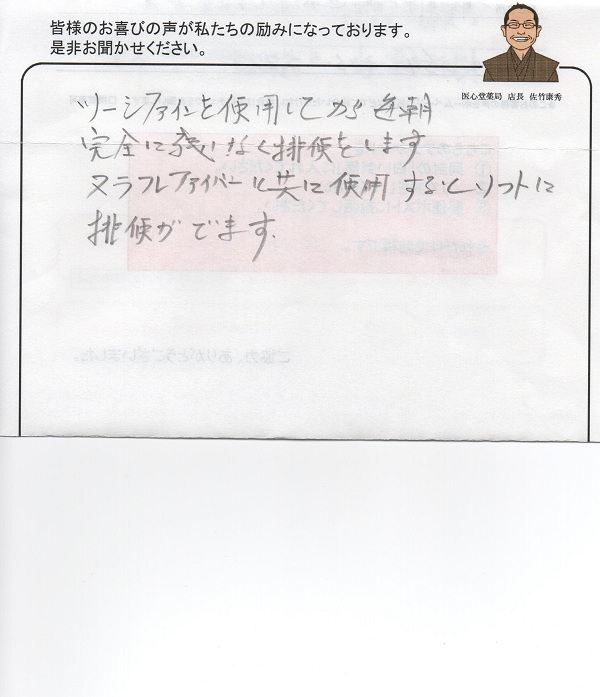 皆様のお喜びの声が私たちの励みになっております。
是非お聞かせください。
医心堂薬局 店長 佐竹康秀
ツーシファインを使用してから
完全に なく排便をします
ヌラフレファイバーと共に使用するとソフトに
排便がでます.
ご協力、ありがとうございました。